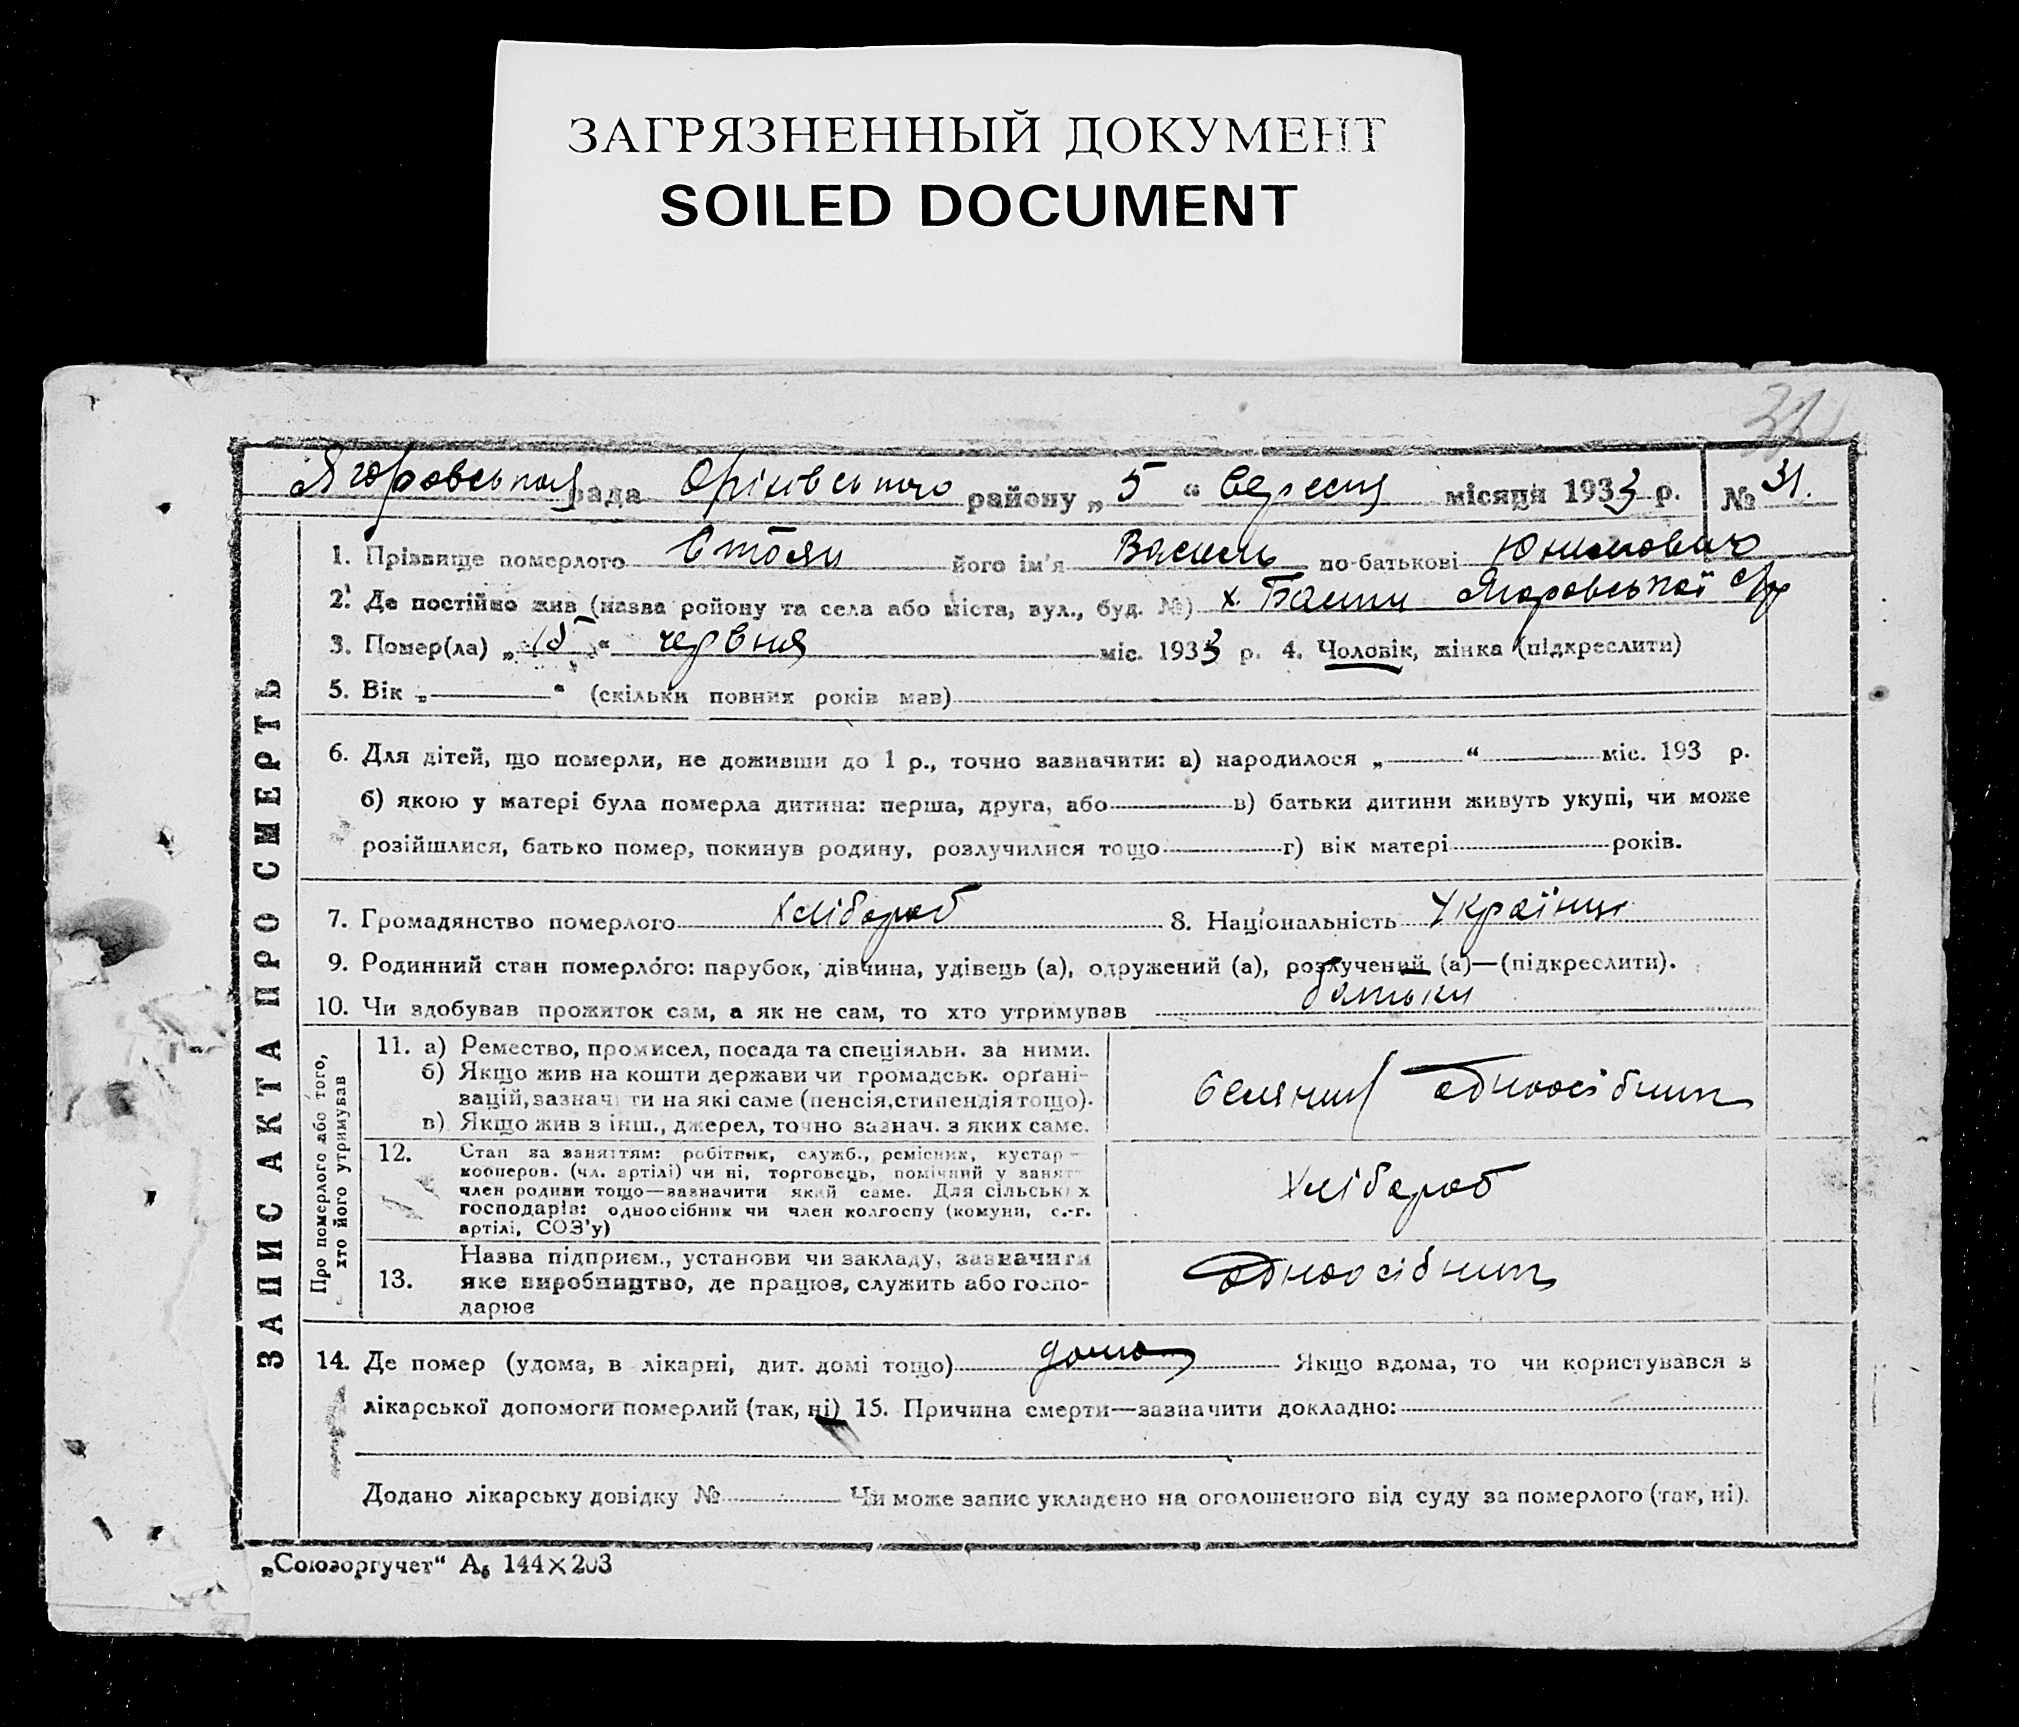 ЗАГРЯЗНЕННЫЙ ДОКУМЕНТ
SOILED DOCUMENT
рада Оріхівського району „ 5 “ Вересня місяця 1933 р. № 31.
ЗАПИС АКТА ПРО СМЕРТЬ
1. Прізвище померлого Стоян його ім'я Василь по-батькові
2. Де постійно жив (назва ройону та села або міста, вул., буд. №) х.
3. Помер(ла) „ “ червня міс. 1933 р. 4. Чоловік, жінка (підкреслити)
5. Вік „ “ (скільки повних років мав)
6. Для дітей, що померли, не доживши до 1 р., точно вазначити: а) народилося „ “ міс. 193 р.
б) якою у матері була померла дитина: перша, друга, або в) батьки дитини живуть укупі, чи може
розійшлися, батько помер, покинув родину, розлучилися тощо г) вік матері років.
7. Громадянство померлого Хлібороб 8. Національність Українц
9. Родинний стан померлого: парубок, дівчина, удівець (а), одружений (а), розлучений (а)—(підкреслити).
10. Чи здобував прожиток сам, а як не сам, то хто утримував батьки
Про померлого або того,
хто його утримував
11. а) Ремество, промисел, посада та спеціяльн. за ними.
б) Якщо жив на кошти держави чи громадськ. орґані-
зацій, зазначити на які саме (пенсія, стипендія тощо).
в) Якщо жив з інш., джерел, точно зазнач. з яких саме.
Селянин одноосібник
12. Стан за заняттям: робітник, служб., ремісник, кустар—
кооперов. (чл. артілі) чи ні, торговець, помічний у занят
член родини тощо—зазначити який саме. Для сільських
господарів: одноосібник чи член колгоспу (комуни, с.-г.
артілі, СОЗ'у)
Хлібороб
13. Назва підприєм., установи чи закладу, зазначити
яке виробництво, де працює, служить або госпо-
дарює
Одноосібник
14. Де помер (удома, в лікарні, дит. домі тощо) дома Якщо вдома, то чи користувався з
лікарської допомоги померлий (так, ні) 15. Причина смерти—зазначити докладно:
Додано лікарську довідку № Чи може запис укладено на оголошеного від суду за померлого (так, ні).
„Союзоргучет“ А₅ 144×203